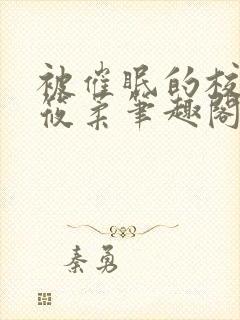 被催眠的校
筱柔笔趣阁
秦勇